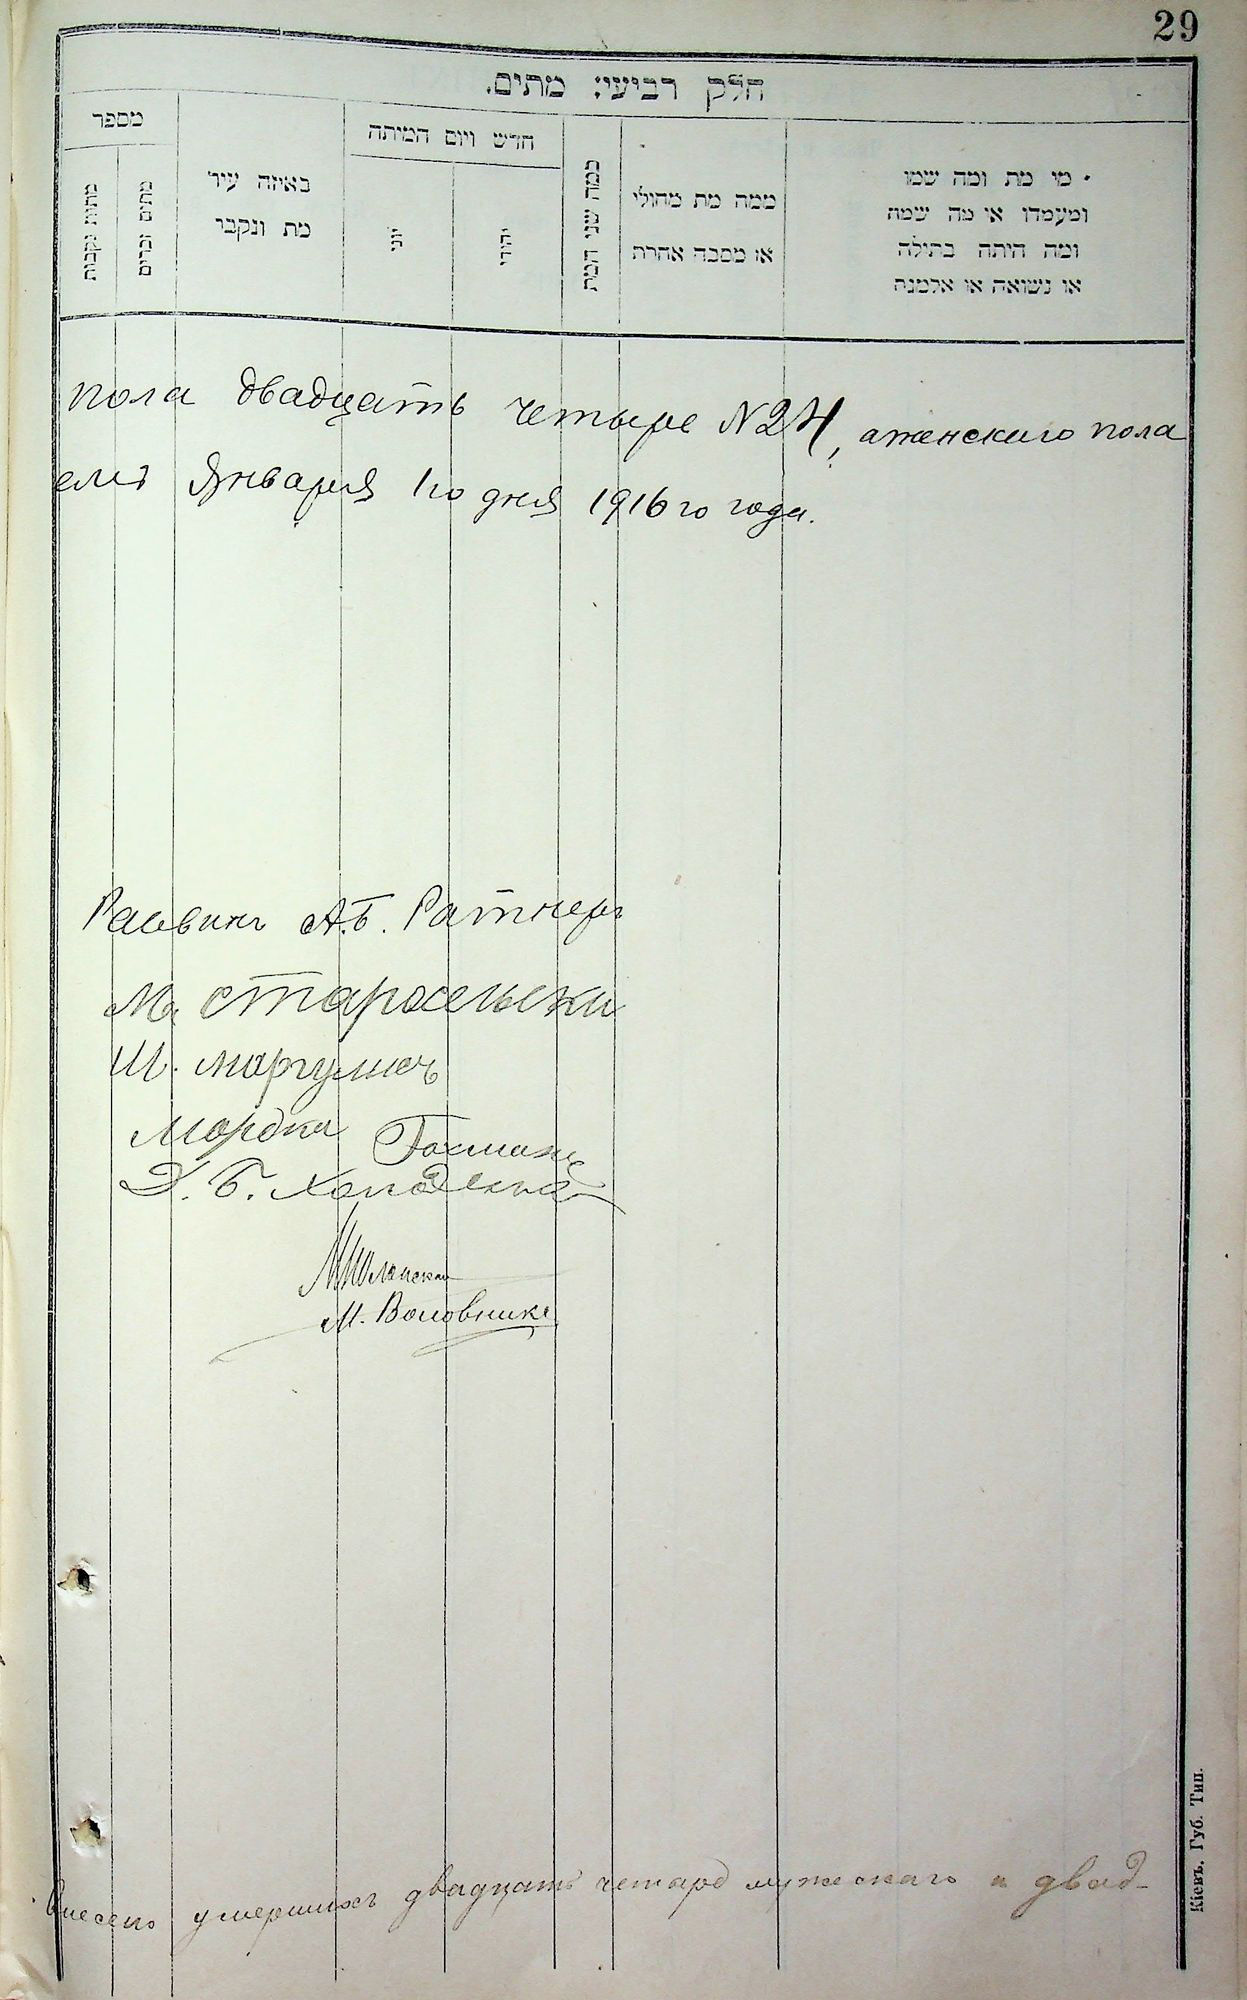 29
חלק רביעי: מתים.
מספר
מתות נקבות
מתים זכרים
באיזה עיר
מת ונקבר
חדש ויום המיתה
יוני
יהודי
כמה שני המת
ממה מת מחולי
או מסבה אחרת
מי מת ומה שמו
ומעמדו או מה שמה
ומה היתה בתולה
או נשואה או אלמנה
пола двадцать четыре №24, а женскаго пола
Января 1го дня 1916го года.
Раввинъ А.Б. Ратнеръ
М. Старосельски
Ш. Маргулисъ
Мордка Гохманъ
Б.
М. Воловникъ
Внесено умершихъ двадцать четыре мужескаго и двад-
Кіевъ. Губ. Тип.